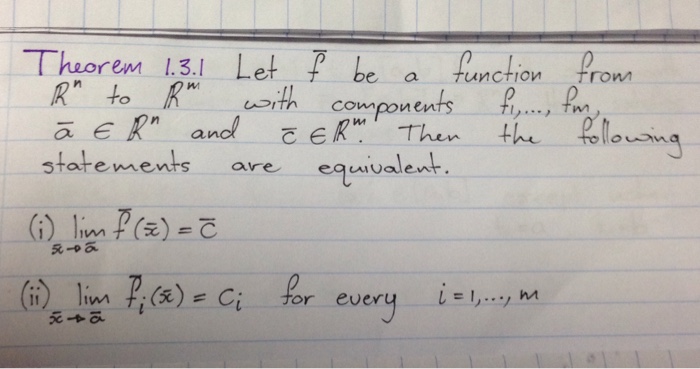 Theorem 1.3.1 Let f̄ be a function from
Rⁿ to Rᵐ with components f₁,..., fₘ,
ā ∈ Rⁿ and c̄ ∈ Rᵐ. Then the following
statements are equivalent.
(i) lim f̄(x̄) = c̄
x̄→ā
(ii) lim f̄ᵢ(x̄) = cᵢ for every i = 1,..., m
x̄→ā